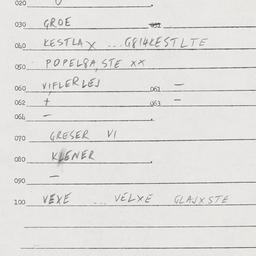 020
030 GROE 031
040 KESTLAX ... G814KESTLTE
050 POPEL8A,STE XX
060 VIFLERLEJ 061 —
062 + 063 —
064 —
070 GRESER VI
080 KLENER
090 —
100 VEXE ... VELXE GLAJXSTE